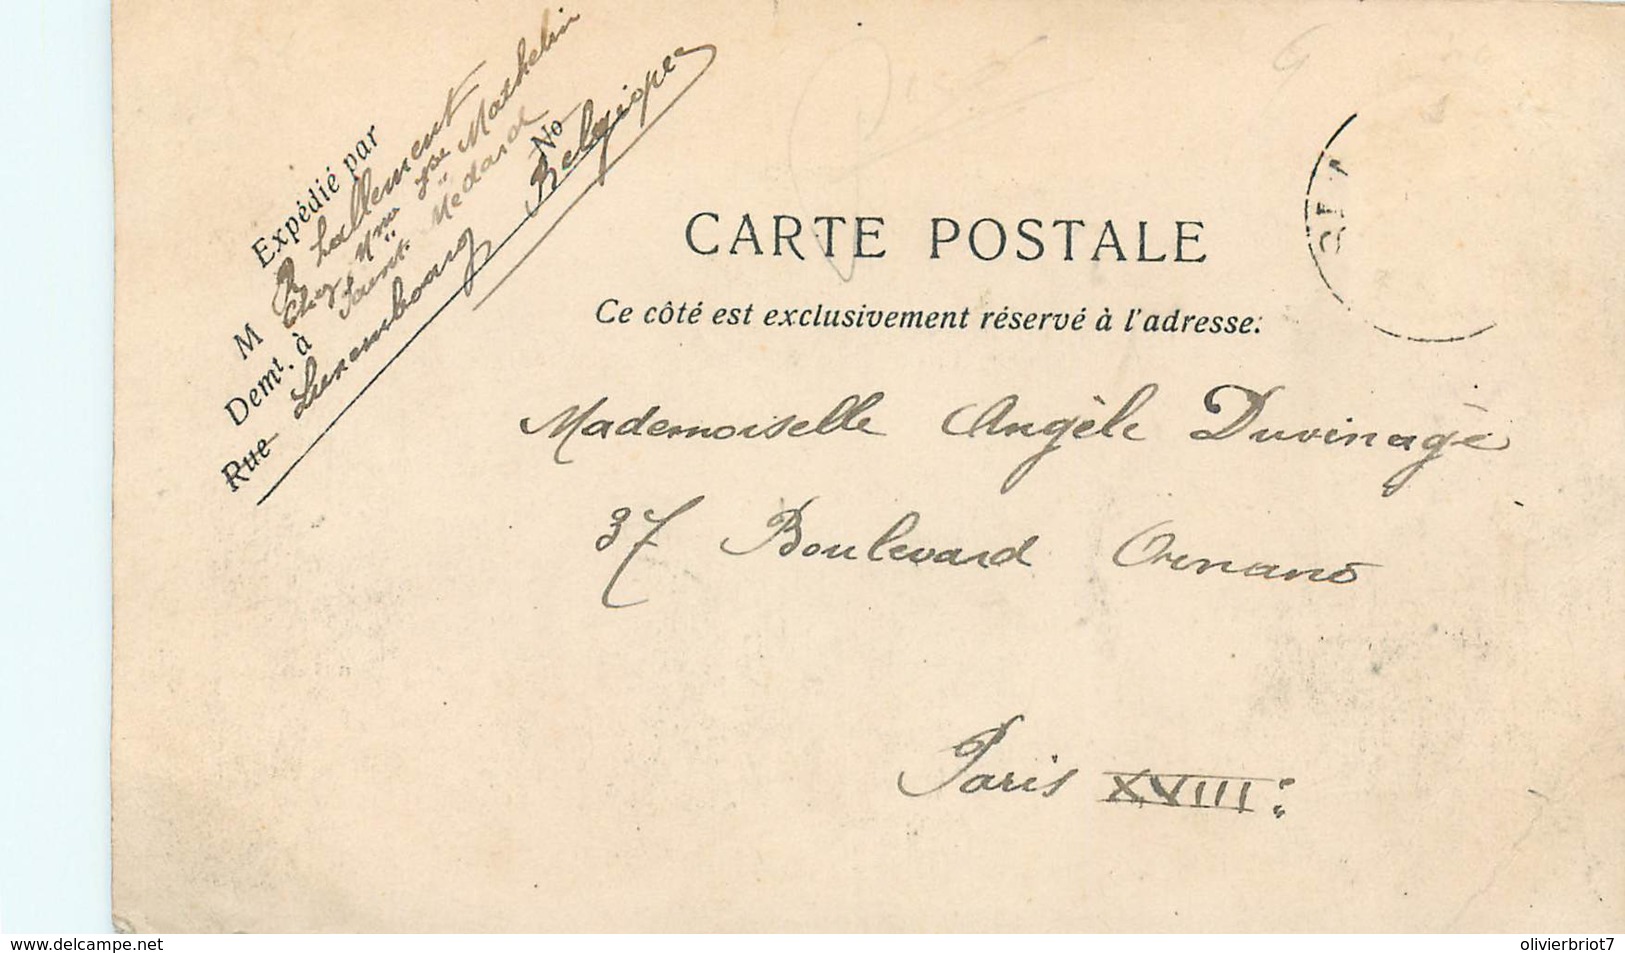 Expédié par
M R Lallement
Chez Mme Vve Mathelin
Demt. à Saint. Médard
Rue Luxembourg No Belgique
CARTE POSTALE
Ce côté est exclusivement réservé à l'adresse.
Mademoiselle Angèle Duvinage
37 Boulevard Ornano
Paris XVIII:
www.delcampe.net
olivierbriot7